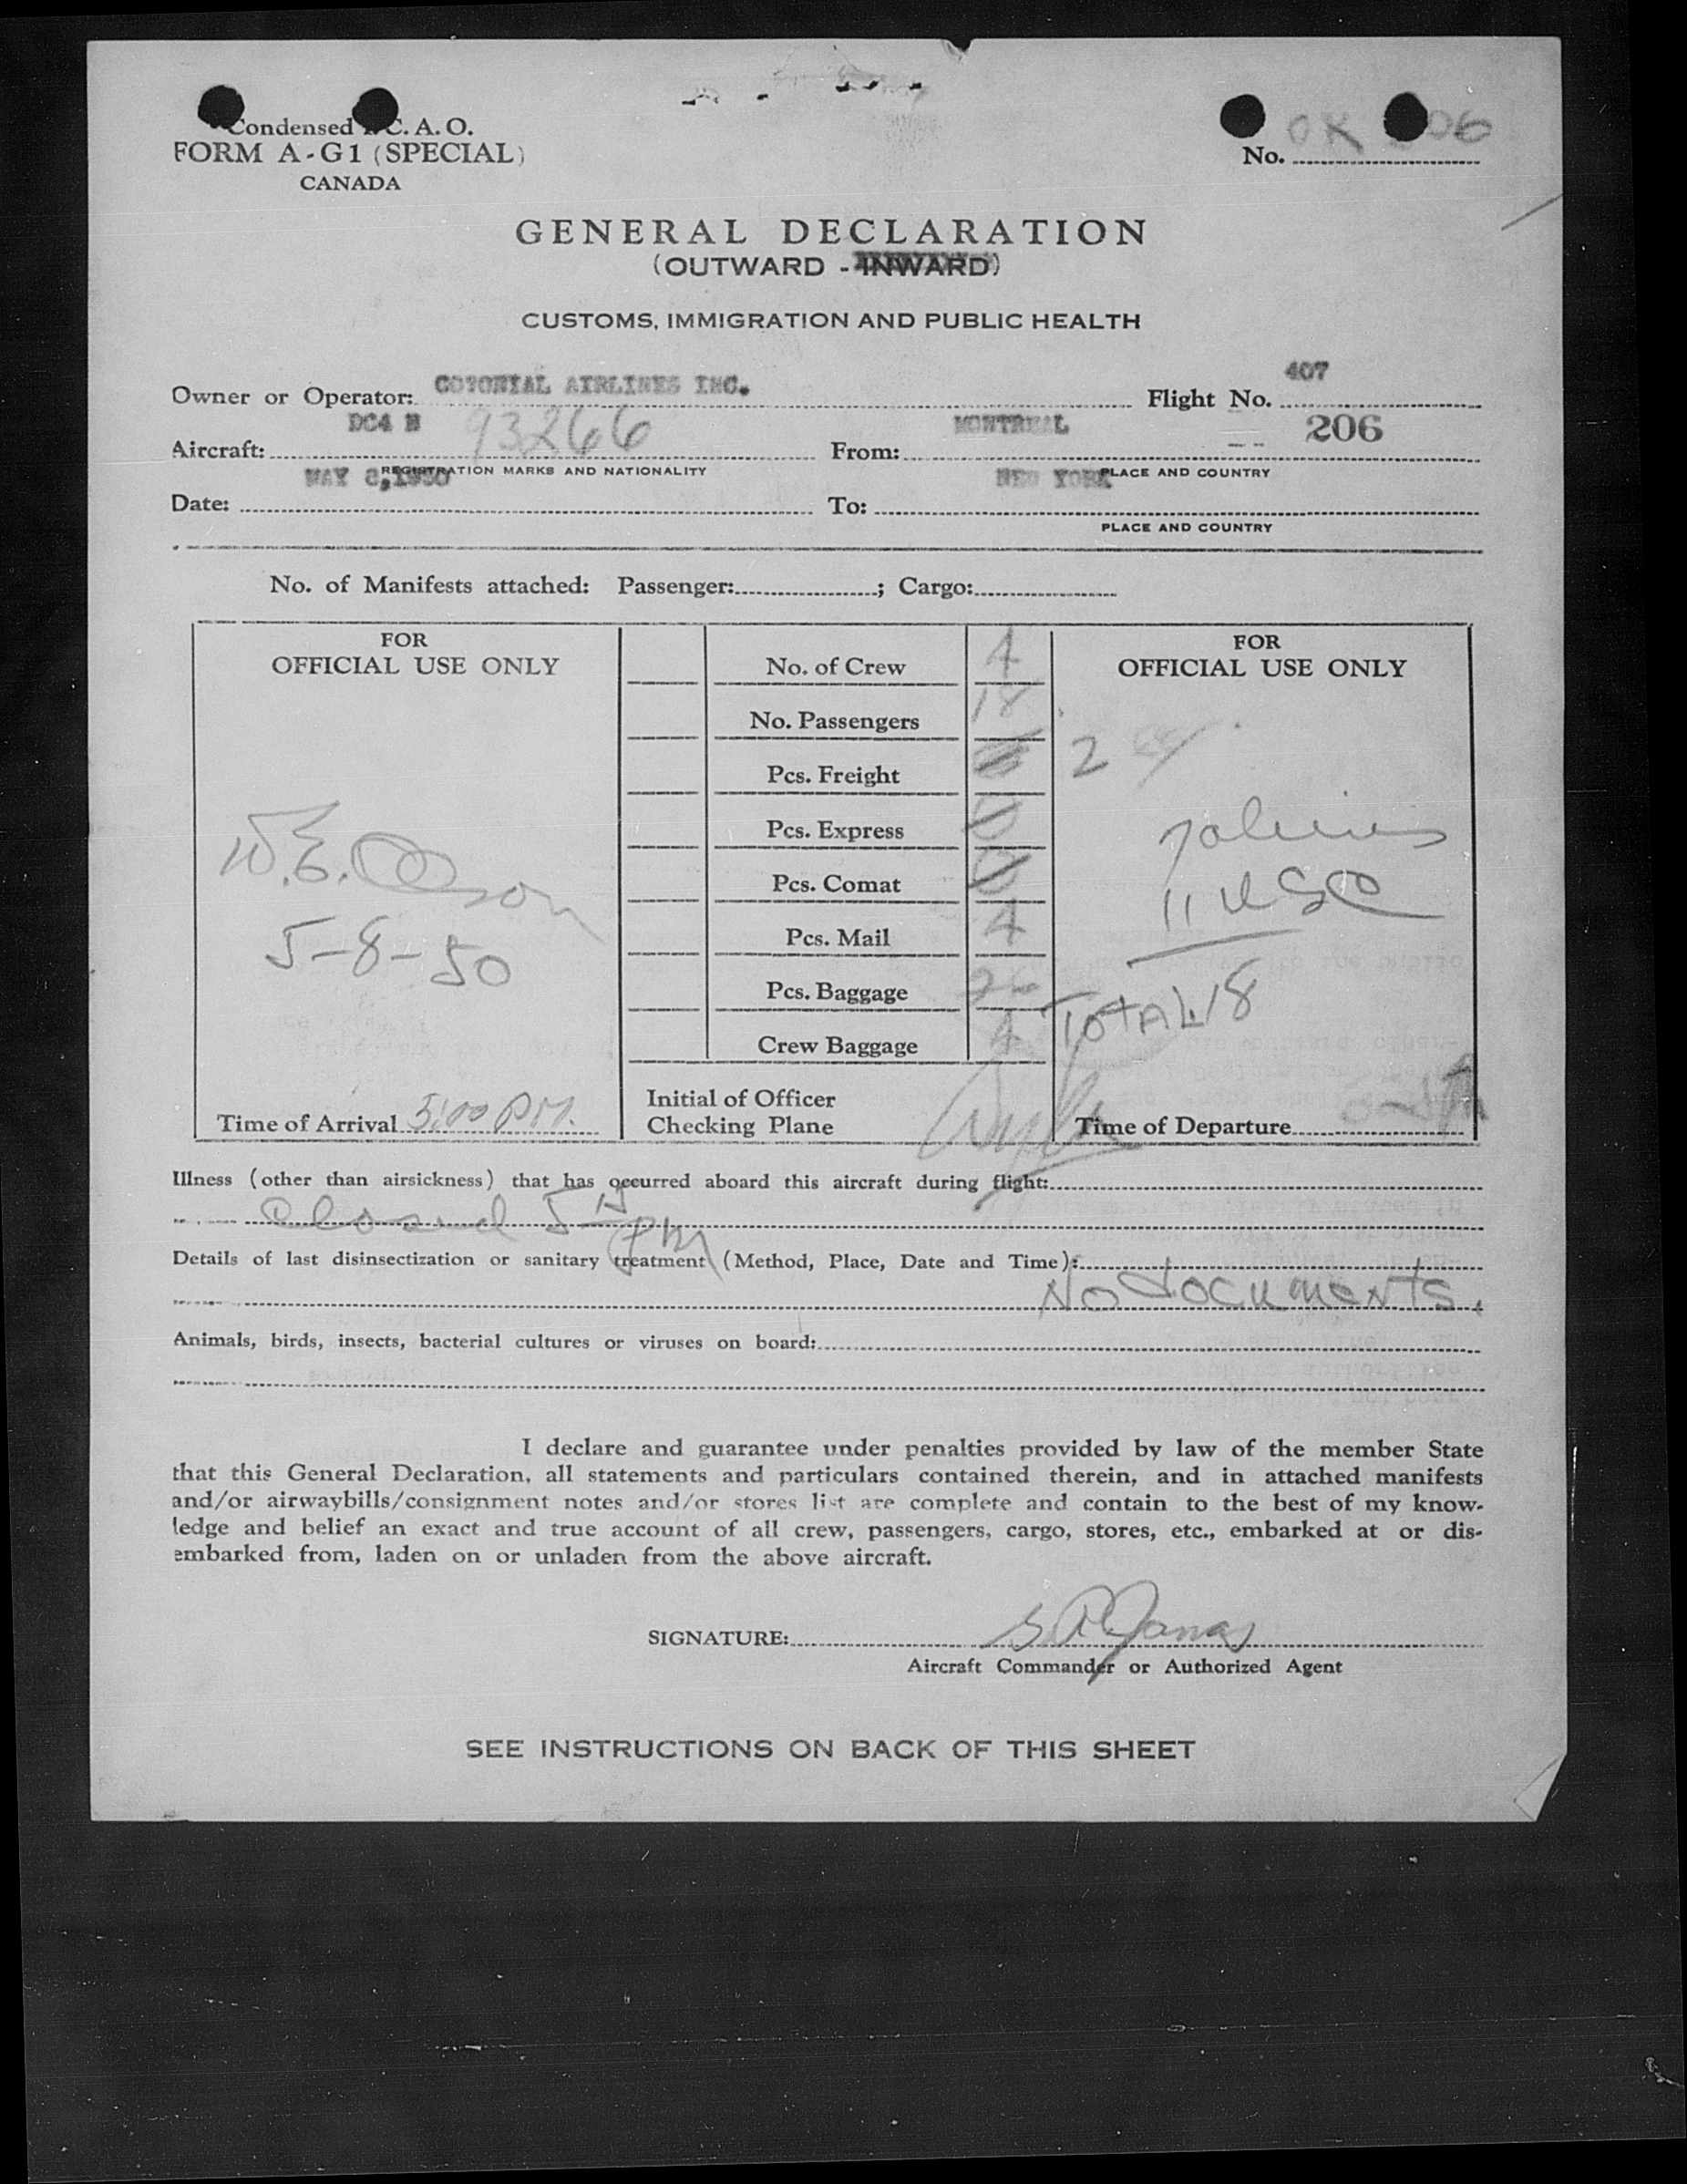 Condensed C. A. O.
FORM A-G1 (SPECIAL)
CANADA
OK 06
No.
GENERAL DECLARATION
(OUTWARD - INWARD)
CUSTOMS, IMMIGRATION AND PUBLIC HEALTH
407
Owner or Operator: COLONIAL AIRLINES INC. Flight No.
Aircraft: DC4 N 93266 From: MONTREAL 206
REGISTRATION MARKS AND NATIONALITY PLACE AND COUNTRY
Date: MAY 8,1950 To: NEW YORK
PLACE AND COUNTRY
No. of Manifests attached: Passenger: ; Cargo:
FOR
OFFICIAL USE ONLY
W.E. Olson
5-8-50
Time of Arrival 5:00 PM.
No. of Crew 4
No. Passengers 18
Pcs. Freight
Pcs. Express 0
Pcs. Comat 0
Pcs. Mail 4
Pcs. Baggage
Crew Baggage 4
Initial of Officer
Checking Plane
FOR
OFFICIAL USE ONLY
2
7 aliens
11 USC
TOTAL 18
Time of Departure
Illness (other than airsickness) that has occurred aboard this aircraft during flight:
Closed 5
PM
Details of last disinsectization or sanitary treatment (Method, Place, Date and Time):
No documents.
Animals, birds, insects, bacterial cultures or viruses on board:
I declare and guarantee under penalties provided by law of the member State
that this General Declaration, all statements and particulars contained therein, and in attached manifests
and/or airwaybills/consignment notes and/or stores list are complete and contain to the best of my know-
ledge and belief an exact and true account of all crew, passengers, cargo, stores, etc., embarked at or dis-
embarked from, laden on or unladen from the above aircraft.
SIGNATURE:
Aircraft Commander or Authorized Agent
SEE INSTRUCTIONS ON BACK OF THIS SHEET